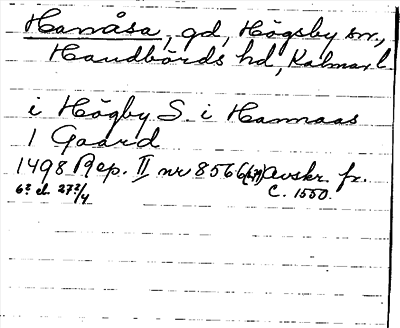 Hanåsa, gd, Högsby sn.,
Handbörds hd, Kalmar l.
i Högby S. i Hannaas
1 Gaard
1498 Rep. II nr 8566 Avskr. fr.
6? el. 27?/4 c. 1550.